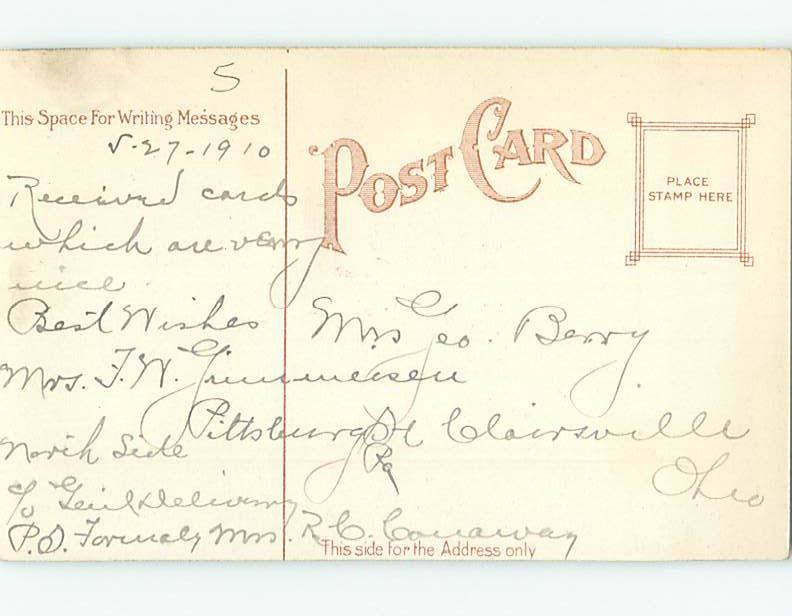 5
This Space For Writing Messages
5-27-1910
Received cards
which are very
nice.
Best Wishes
Mrs. F. W.
Pittsburg
Pa
North Side
c/o Gen'l Delivery
P.S. Formaly Mrs. R. C. Conaway
POST CARD
PLACE
STAMP HERE
Mrs Geo. Berry
St Clairsville
Ohio
This side for the Address only